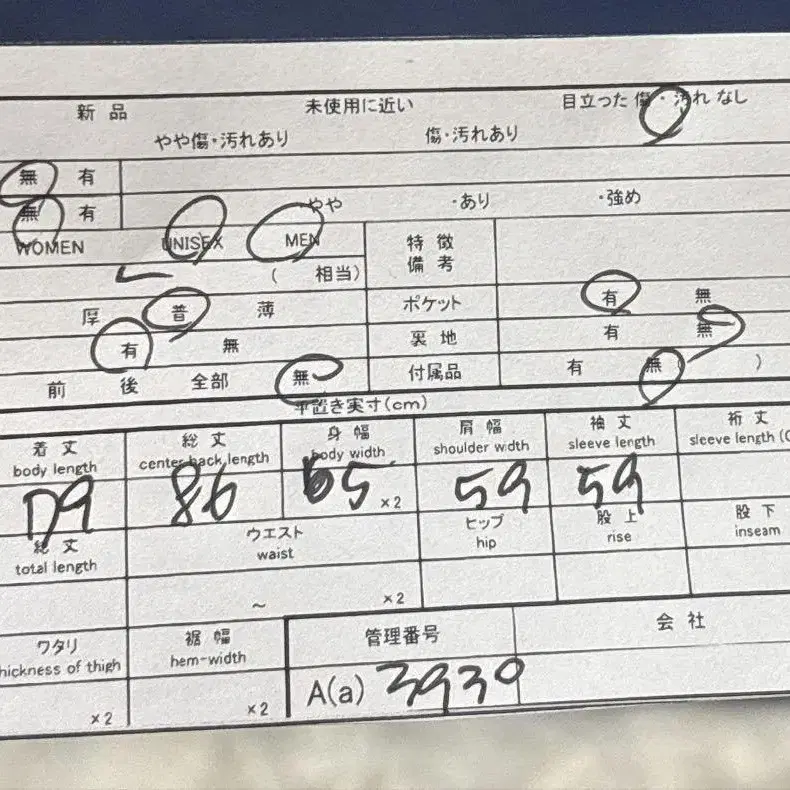 新品 未使用に近い 目立った傷・汚れなし
やや傷・汚れあり 傷・汚れあり
無 有
無 有 ・やや ・あり ・強め
WOMEN UNISEX MEN 特徴
備考
L ( 相当)
厚 普 薄 ポケット 有 無
有 無 裏地 有 無
前 後 全部 無 付属品 有 無 )
平置き実寸(cm)
着丈 総丈 身幅 肩幅 袖丈 裄丈
body length center back length body width shoulder width sleeve length sleeve length (C
79 86 65 ×2 59 59
総丈 ウエスト ヒップ 股上 股下
total length waist hip rise inseam
~ ×2
ワタリ 裾幅 管理番号 会社
hickness of thigh hem-width
×2 ×2 A(a) 3939